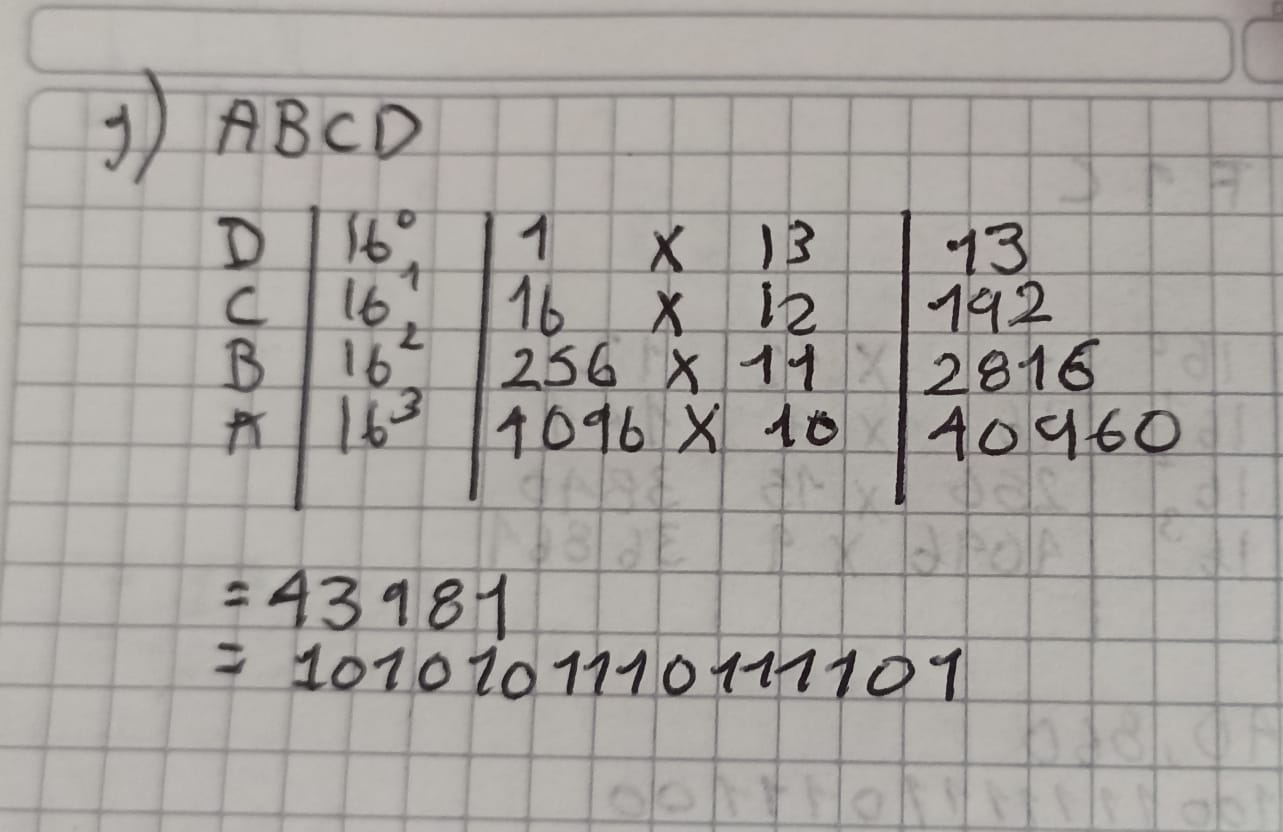 g) ABCD
D | 16⁰ | 1 x 13 | 13
C | 16¹ | 16 x 12 | 192
B | 16² | 256 x 11 | 2816
A | 16³ | 4096 x 10 | 40960
= 43981
= 1010101110111101